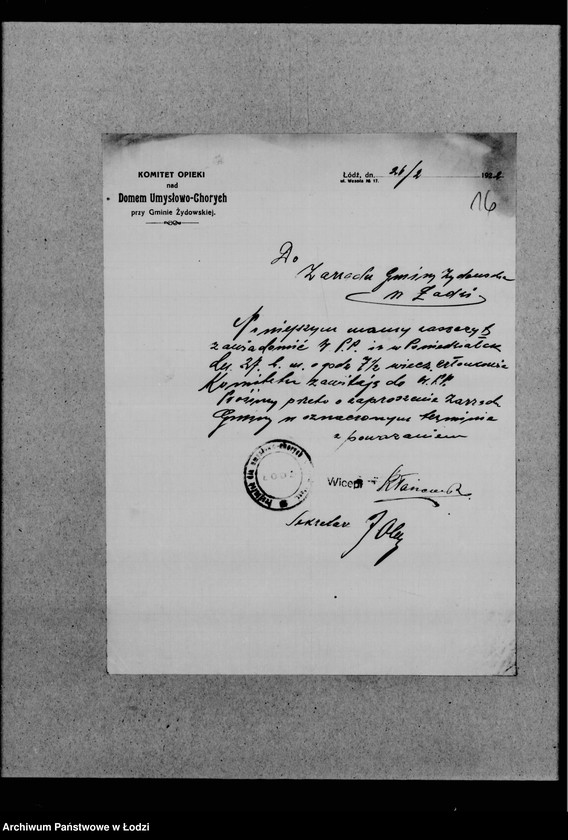 KOMITET OPIEKI
nad
Domem Umysłowo-Chorych
przy Gminie Żydowskiej.
Łódź, dn. 26/2 192
ul. Wesoła № 17.
16
Do
Zarządu Gminy Żydowskiej
w Łodzi
Niniejszym mamy zaszczyt
zawiadomić W.P.P. iż w Poniedziałek
dn. 27 b. m. o godz 7½ wiecz. członkowie
Komitetu zawitają do W.P.P.
Prosimy przeto o zaproszenie Zarząd
Gminy w oznaczonym terminie
z poważaniem
Wicepr
Sekretarz
Archiwum Państwowe w Łodzi